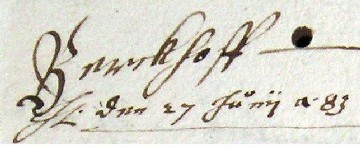 Berckhoff
den 27 Junij a 83